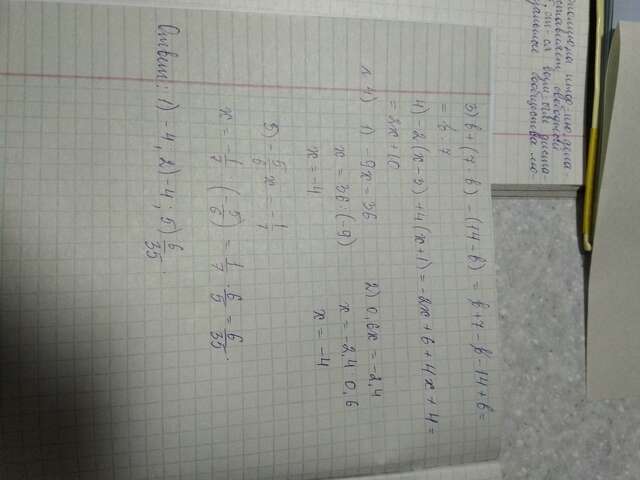 3) b + (7 - b) - (14 - b) = b + 7 - b - 14 + b =
= b - 7
4) -2(x - 3) + 4(x + 1) = -2x + 6 + 4x + 4 =
= 2x + 10
1) -9x = 36
x = 36 : (-9)
x = -4
2) 0,6x = -2,4
x = -2,4 : 0,6
x = -4
5) -5/6 x = -1/7
x = -1/7 : (-5/6) = 1/7 · 6/5 = 6/35.
Ответ: 1) -4; 2) 4; 5) 6/35.